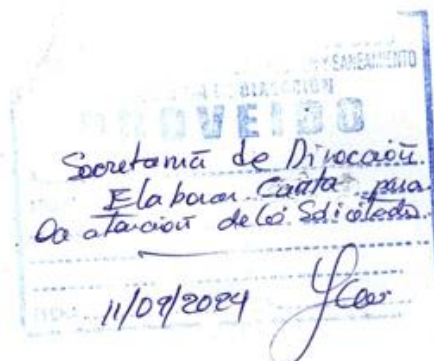 Y SANEAMIENTO
DE DIRECCIÓN
PROVEIDO
Secretaria de Dirección.
Elaborar Carta para
Da atención de lo Solicitado.
FECHA 11/09/2024